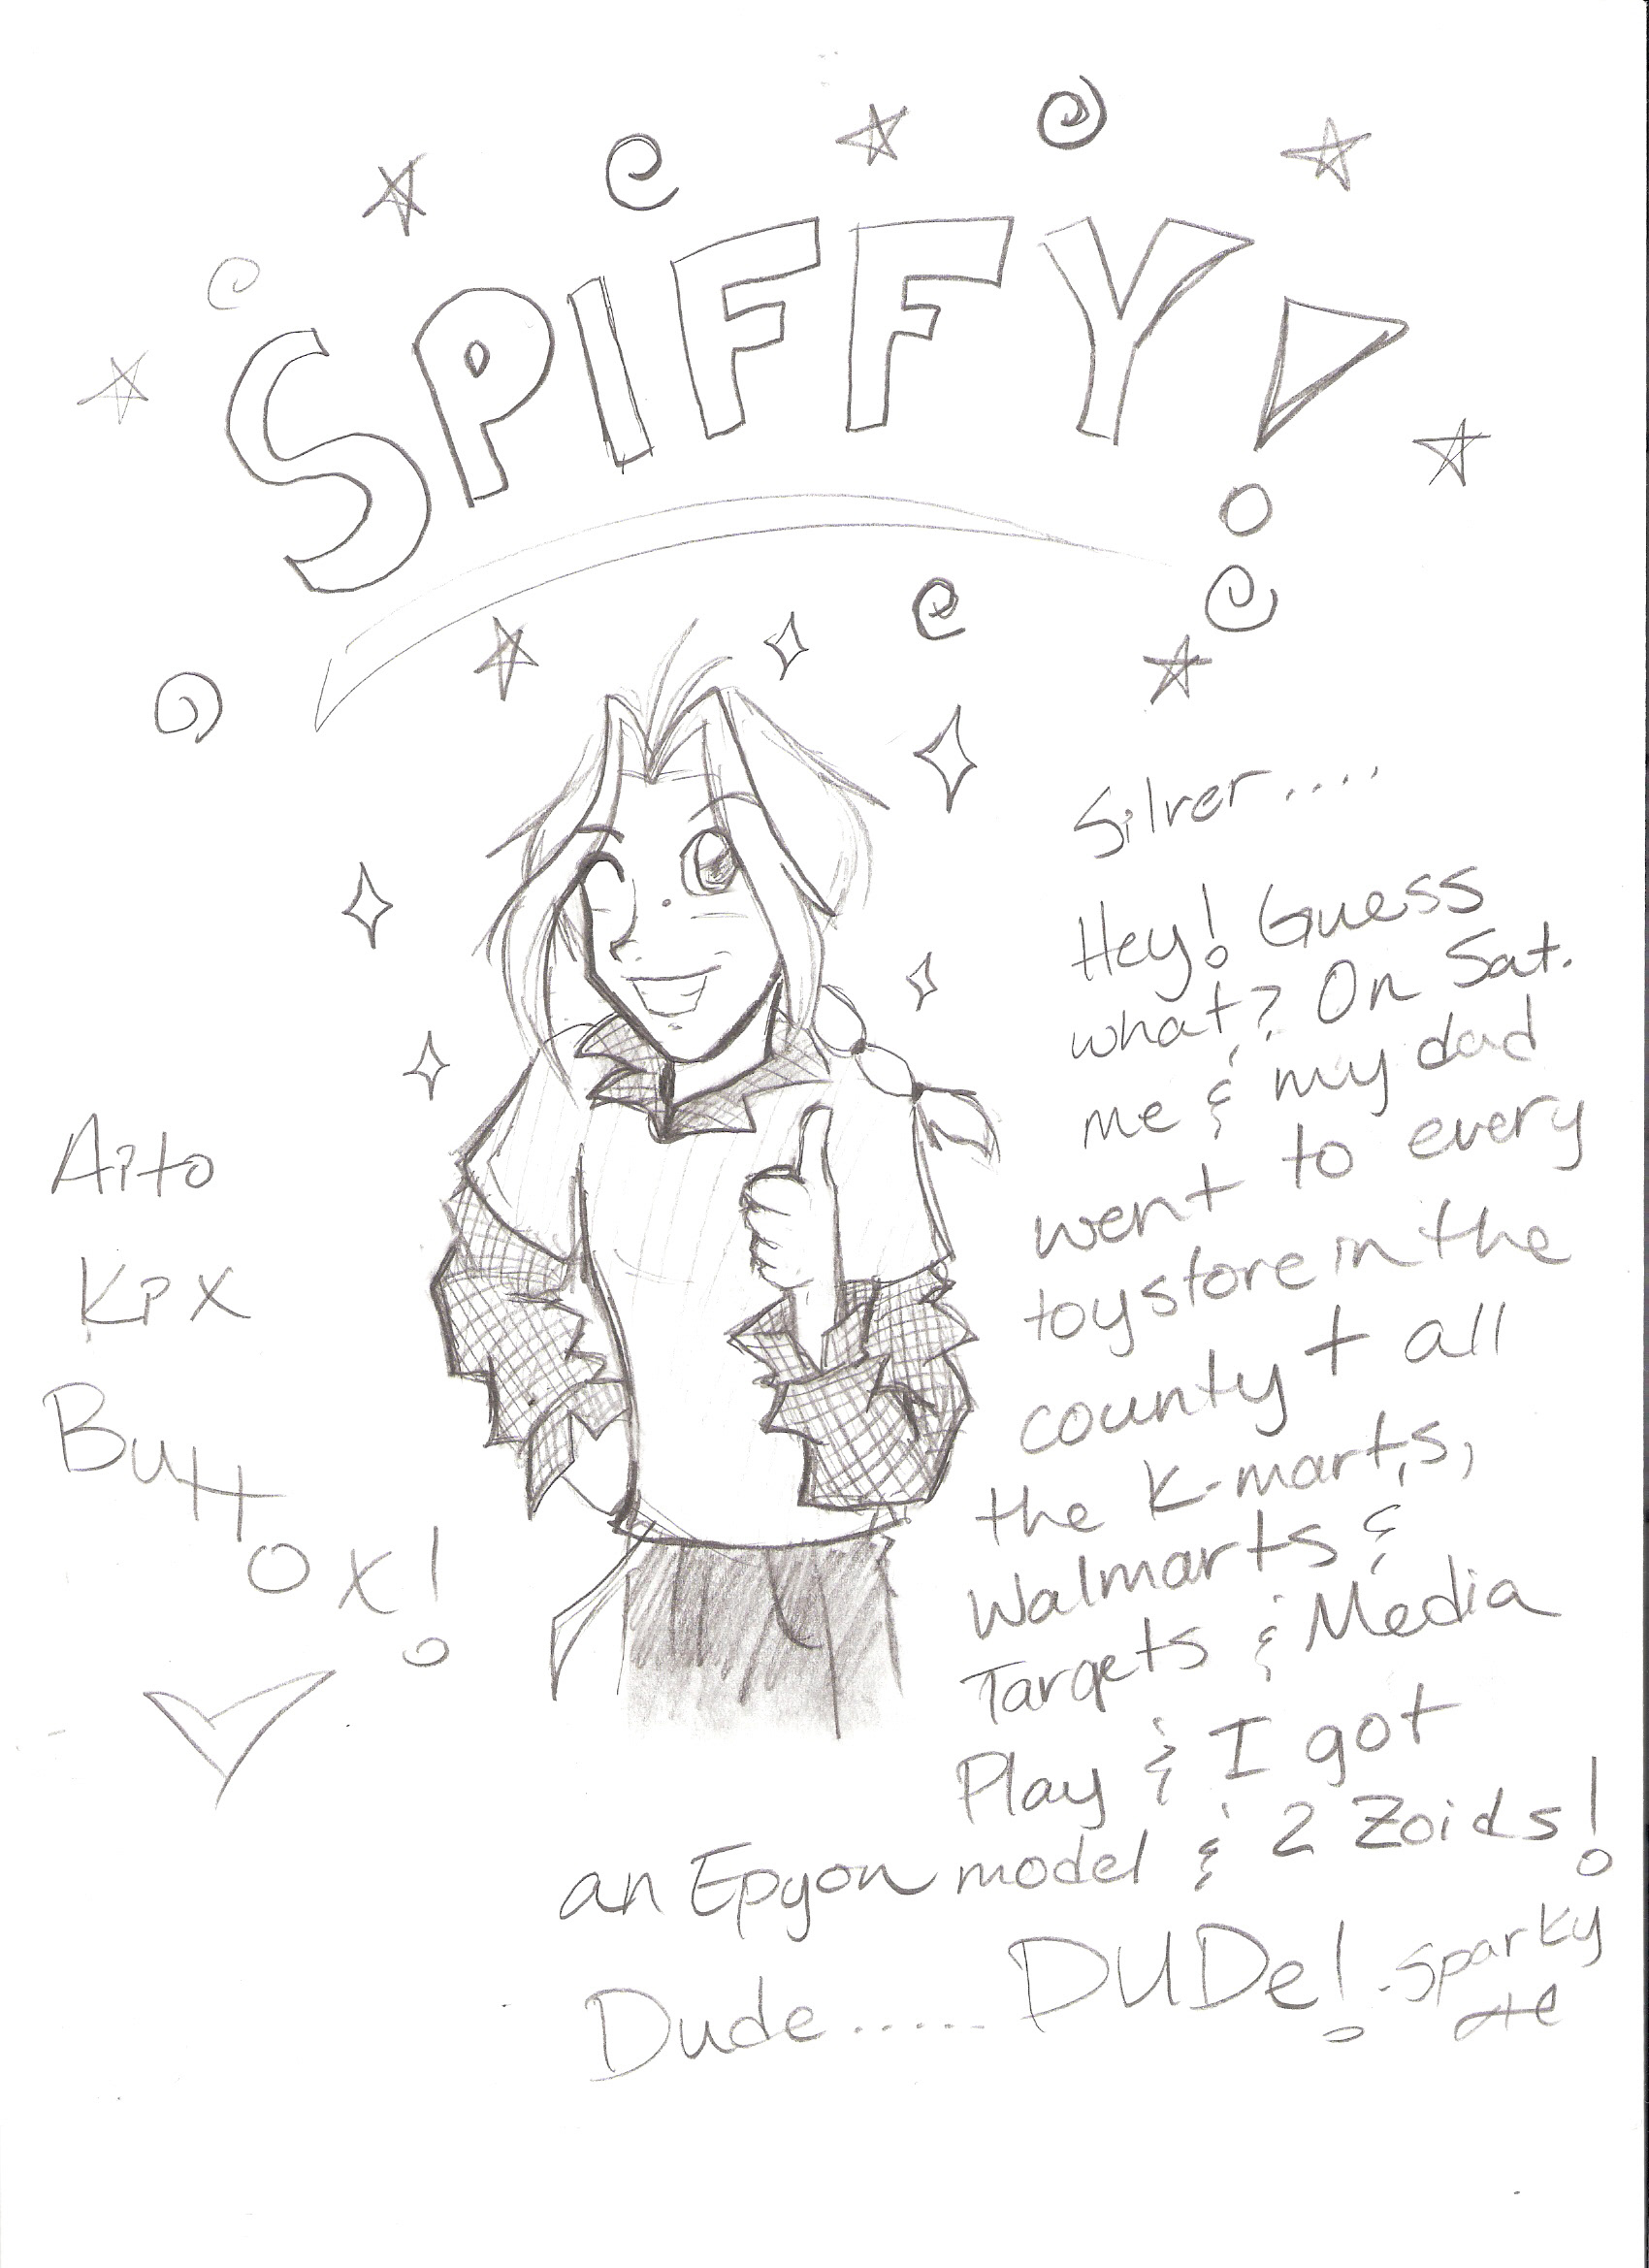 SPIFFY!
Silver....
Hey! Guess
what? On Sat.
me & my dad
went to every
toystore in the
county + all
the K-mart,s,
Walmarts &
Targets & Media
Play & I got
an Epyon model & 2 Zoids!
Dude..... DUDe! -Sparky
Aito
KPX
Butt
ox!